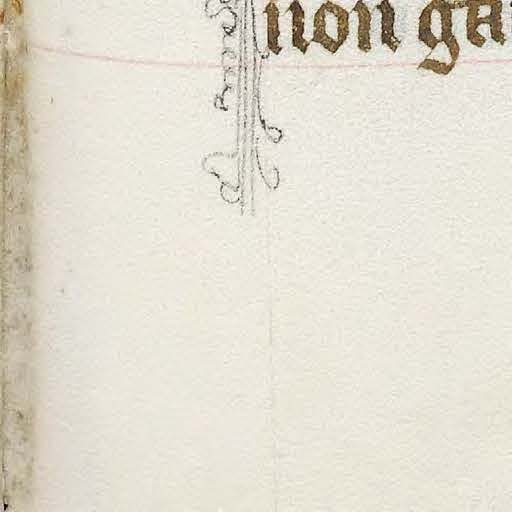 non ga